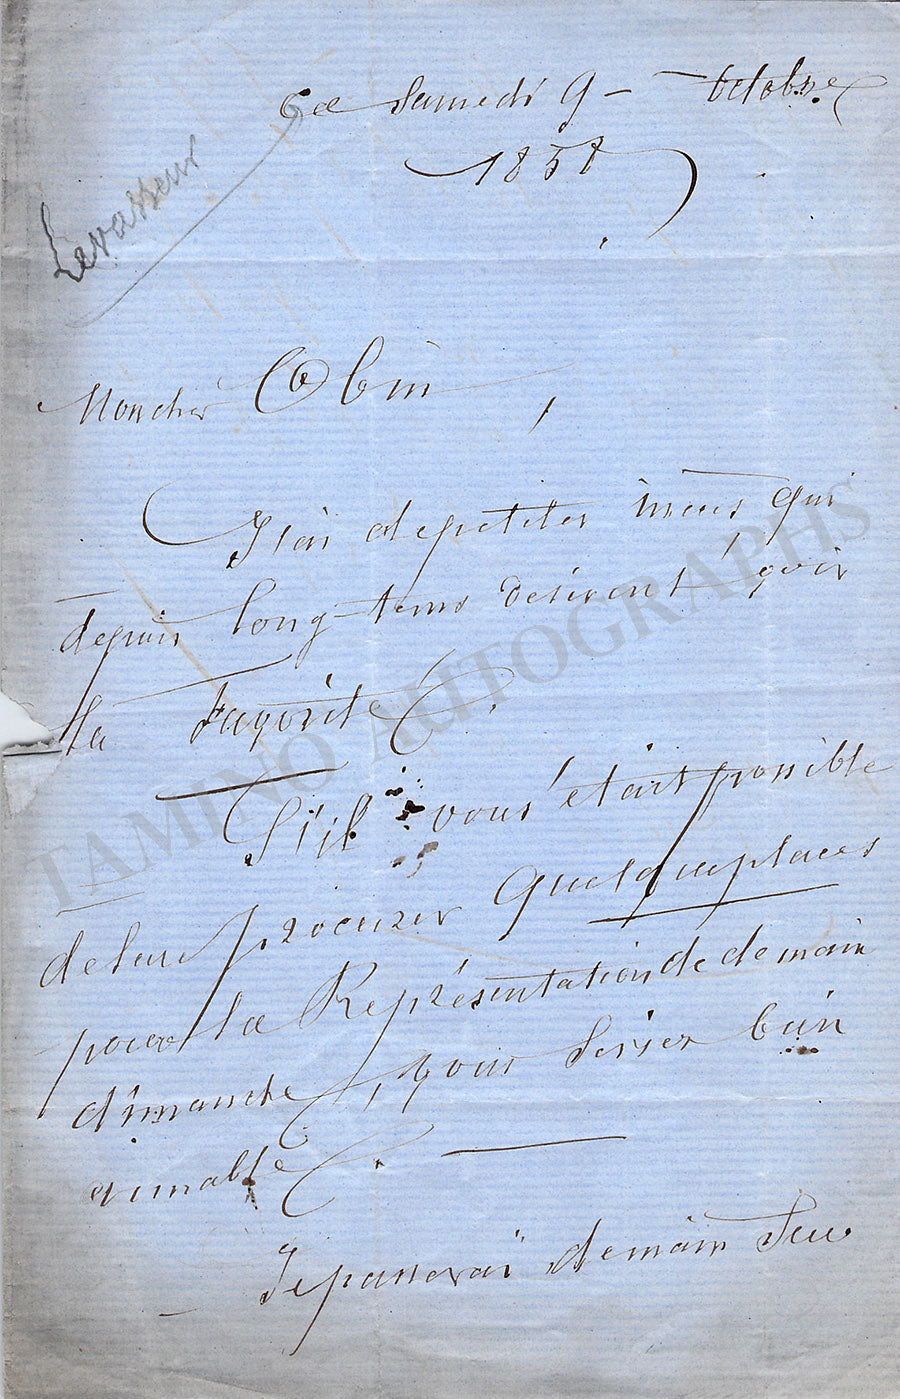 Ce Samedi 9 - Octobre
1858
Levasseur
Mon cher Obin,
J'ai de petites nièces, qui
depuis long-tems désirent voir
la Favorite.
S'il vous était possible
de leur procurer quelques places
pour la Représentation de demain
dimanche, vous seriez bien
aimable.
Je passerai demain
TAMINO AUTOGRAPHS